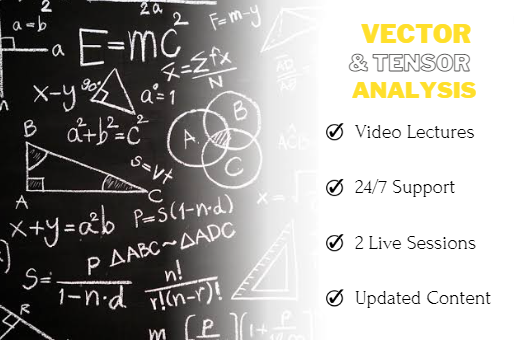 a=b
2
2a
2
F=m-y
a
E=mC
x̄=Σfx
N
x-y
90°
a°=1
B
a²+b²=c²
A.
B
C
S=Vx
A
C
x+y=a²b
P=S(1-n·d)
x=√
△ABC~△ADC
S= P
1-n·d
n!
r!(n-r)!
R
m [P
][1+ P
VECTOR
& TENSOR
ANALYSIS
Video Lectures
24/7 Support
2 Live Sessions
Updated Content